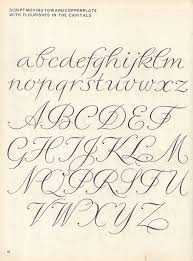 SCRIPT MOVING TOWARD COPPERPLATE
WITH FLOURISHES IN THE CAPITALS
abcdefghijklm
nopqrstuvwxz
ABCDEF
GHIJKLM
NOPQRSTU
VWXYZ